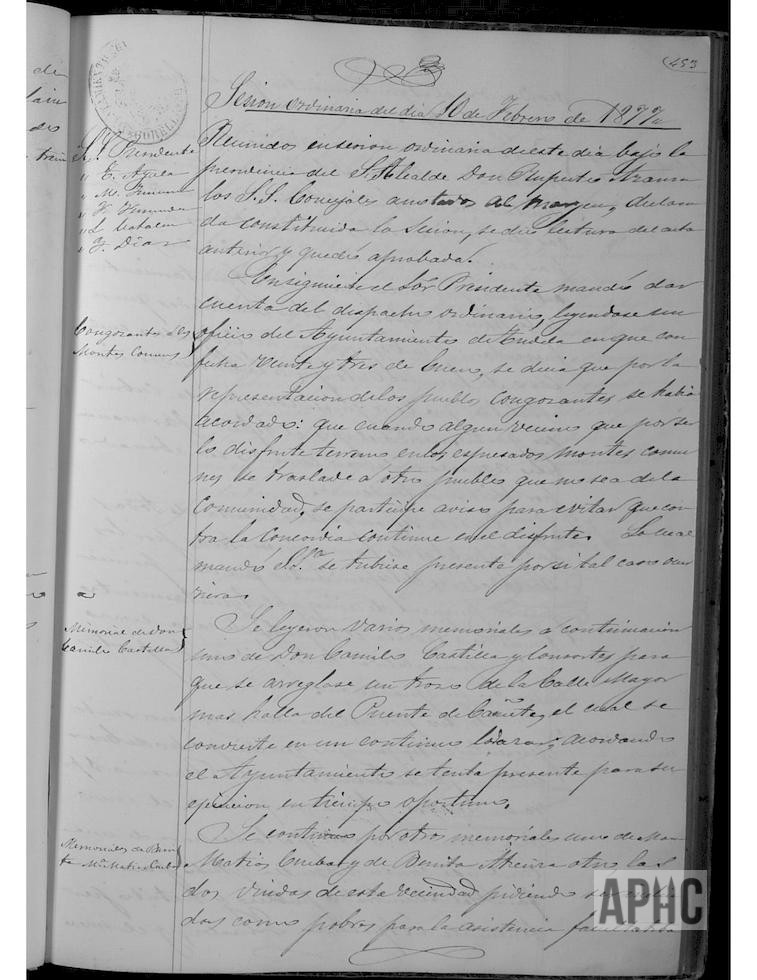 453
Sesion ordinaria del dia 10 de Febrero de 1877
S. Presidente
" E. Ayala
" M.
" F.
" L.
" F. Diaz
Reunidos en sesion ordinaria de este dia bajo la
presidencia del S. Alcalde Don Ruperto
los S.S. Concejales anotados al margen, declara
da constituida la Sesion, se dió lectura del acta
anterior y quedó aprobada.
Enseguida el Sōr Presidente mandó dar
cuenta del despacho ordinario, leyendose un
Congozantes a los
Montes Comunes
oficio del Ayuntamiento de Tudela en que con
fecha veinte y tres de Enero, se decia que por la
representacion de los pueblos congozantes se habia
acordado: que cuando algun vecino que por se
lo disfrute terreno en los espresados montes comu
nes se traslade a otro pueblo que no sea de la
Comunidad, se participe aviso para evitar que con
tra la Concordia continue en el disfrute. Lo cual
mandó S.S. se tubiese presente por si tal caso ocur
riera.
Memorial de Don
Camilo Castilla
Se leyeron varios memoriales a continuacion
uno de Don Camilo Castilla y Consortes para
que se arreglase un trozo de la Calle Mayor
mas halla del Puente de Cañete, el cual se
convierte en un continuo lodazar, acordando
el Ayuntamiento se tenta presente para su
ejecucion en tiempo oportuno.
Memoriales de Beni
ta Mᵃ Matias
Se continuó por otros memoriales uno de Mar
Matias y de Benita otro las
dos viudas de esta vecindad pidiendo
das como pobres para la asistencia facultativa
APHC